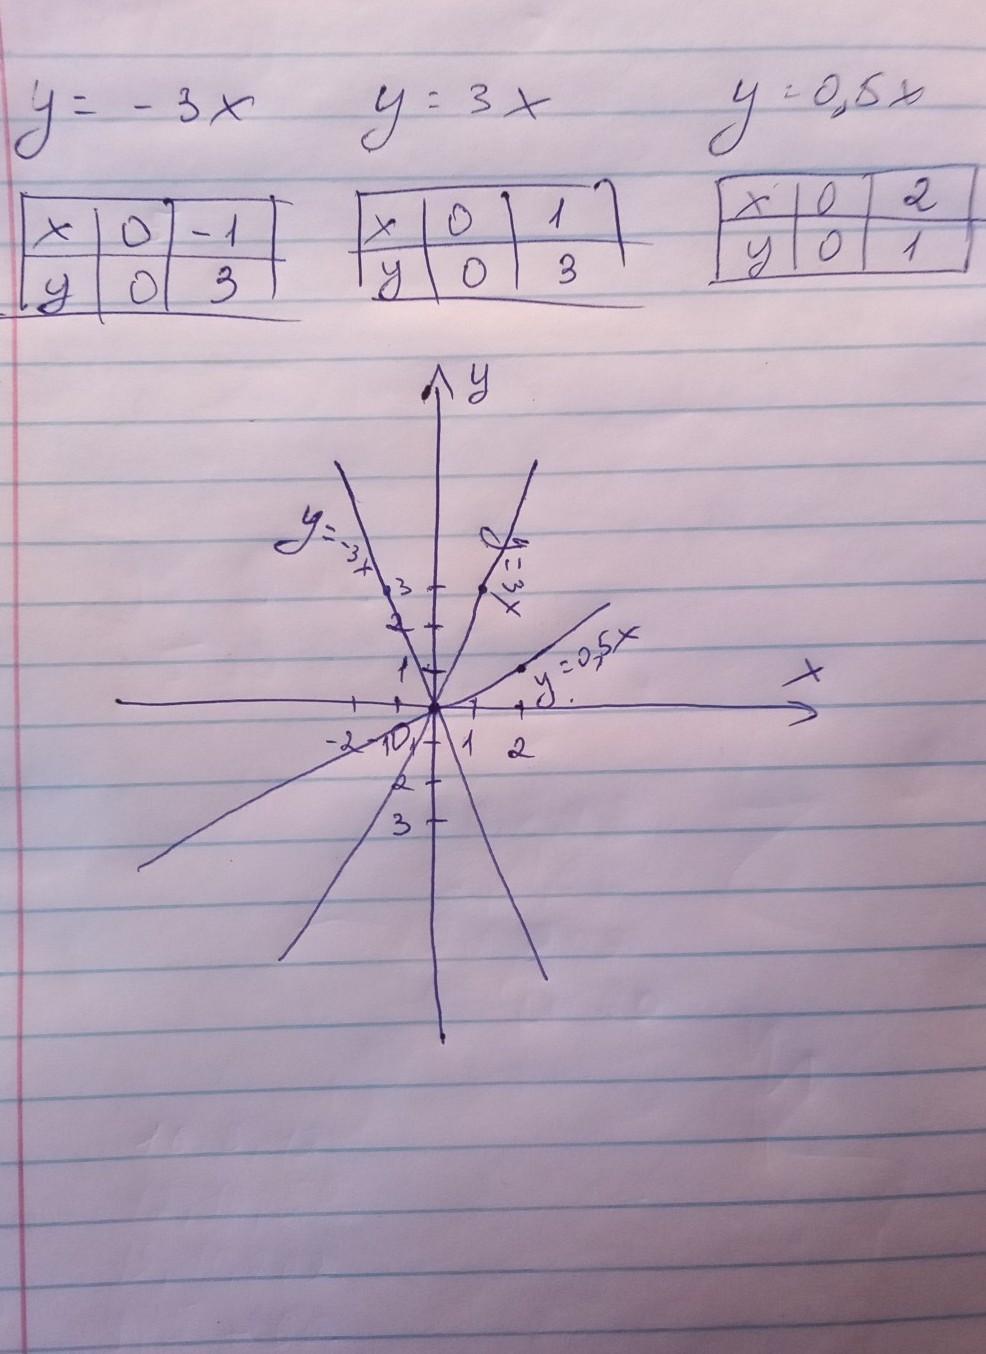 y = -3x y = 3x y = 0,5x
x 0 -1 x 0 1 x 0 2
y 0 3 y 0 3 y 0 1
y
y = -3x y = 3x
3
2
y = 0,5x
1
x
-2 -1 0 1 1 2
2
3